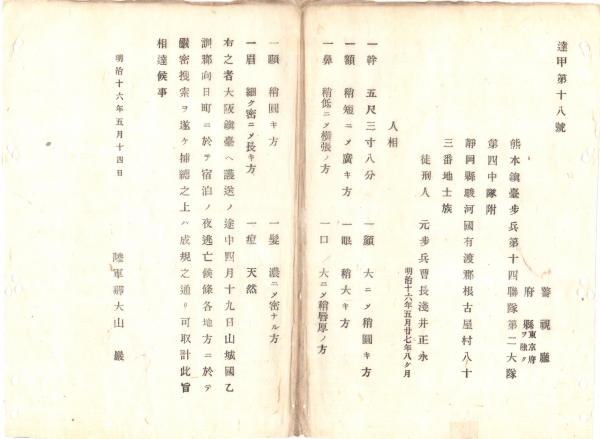 達甲第十八號
警視廳
府縣東京府ヲ除ク
熊本鎭臺步兵第十四聯隊第二大隊
第四中隊附
靜岡縣駿河國有渡郡根古屋村八十
三番地士族
徒刑人 元步兵曹長淺井正永
明治十六年五月廿七年八ケ月
人相
一幹 五尺三寸八分
一顏 大ニメ稍圓キ方
一額 稍短ニメ廣キ方
一眼 稍大キ方
一鼻 稍低ニメ橫張ノ方
一口 大ニメ稍唇厚ノ方
一頤 稍圓キ方
一髮 濃ニメ密ナル方
一眉 細ク密ニメ長キ方
一痘 天然
右之者大阪鎭臺ヘ護送ノ途中四月十九日山城國乙
訓郡向日町ニ於テ宿泊ノ夜逃亡候條各地方ニ於テ
嚴密搜索ヲ遂ケ捕縛之上ハ成規之通リ可取計此旨
相達候事
明治十六年五月十四日
陸軍卿大山 巖